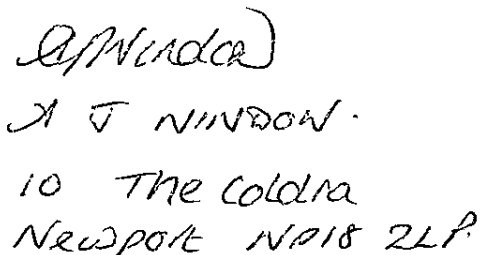 A J NINDOW.
10 The Coldra
Newport NP18 2LP.